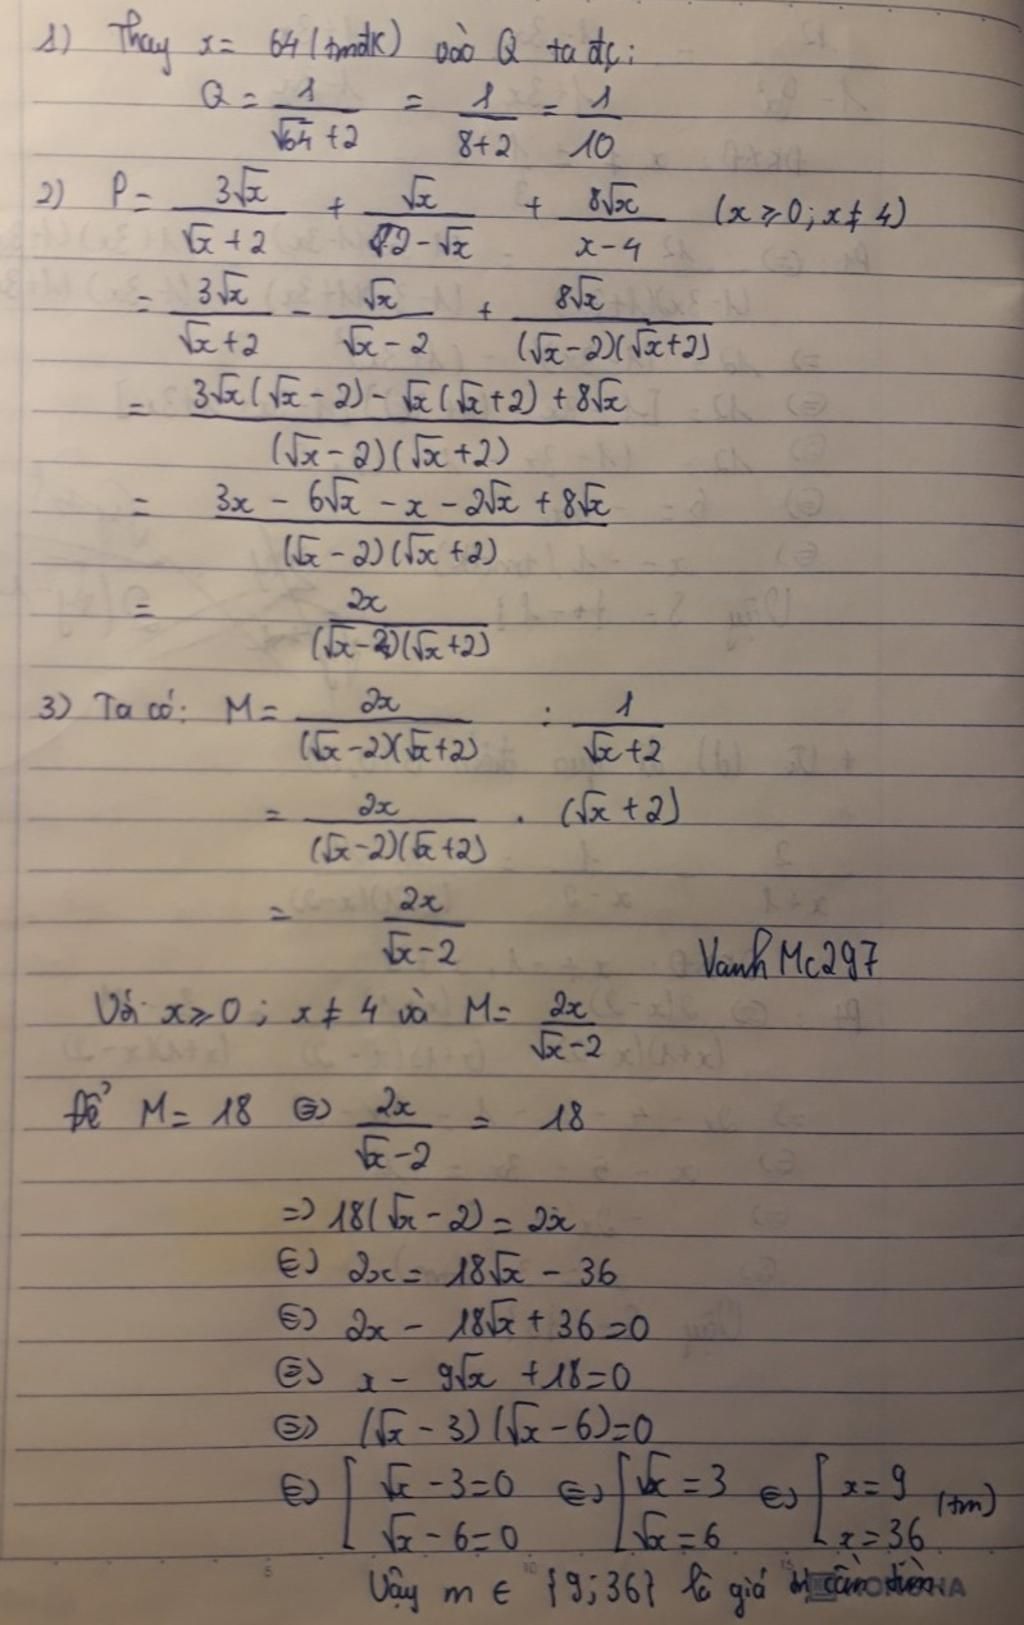 1) Thay x = 64 (tmđk) vào Q ta đc:
Q = 1/(√64 + 2) = 1/(8+2) = 1/10
2) P = 3√x/(√x + 2) + √x/(2 - √x) + 8√x/(x - 4) (x ≥ 0; x ≠ 4)
= 3√x/(√x + 2) - √x/(√x - 2) + 8√x/((√x - 2)(√x + 2))
= (3√x(√x - 2) - √x(√x + 2) + 8√x)/((√x - 2)(√x + 2))
= (3x - 6√x - x - 2√x + 8√x)/((√x - 2)(√x + 2))
= 2x/((√x - 2)(√x + 2))
3) Ta có: M = 2x/((√x - 2)(√x + 2)) : 1/(√x + 2)
= 2x/((√x - 2)(√x + 2)) . (√x + 2)
= 2x/(√x - 2)
VanhMc297
Với x ≥ 0; x ≠ 4 và M = 2x/(√x - 2)
Để M = 18 ⇔ 2x/(√x - 2) = 18
⇒ 18(√x - 2) = 2x
⇔ 2x = 18√x - 36
⇔ 2x - 18√x + 36 = 0
⇔ x - 9√x + 18 = 0
⇔ (√x - 3)(√x - 6) = 0
⇔ [ √x - 3 = 0 ⇔ [ √x = 3 ⇔ [ x = 9 (tm)
√x - 6 = 0 √x = 6 x = 36
Vậy m ∈ {9; 36} là giá trị cần tìm